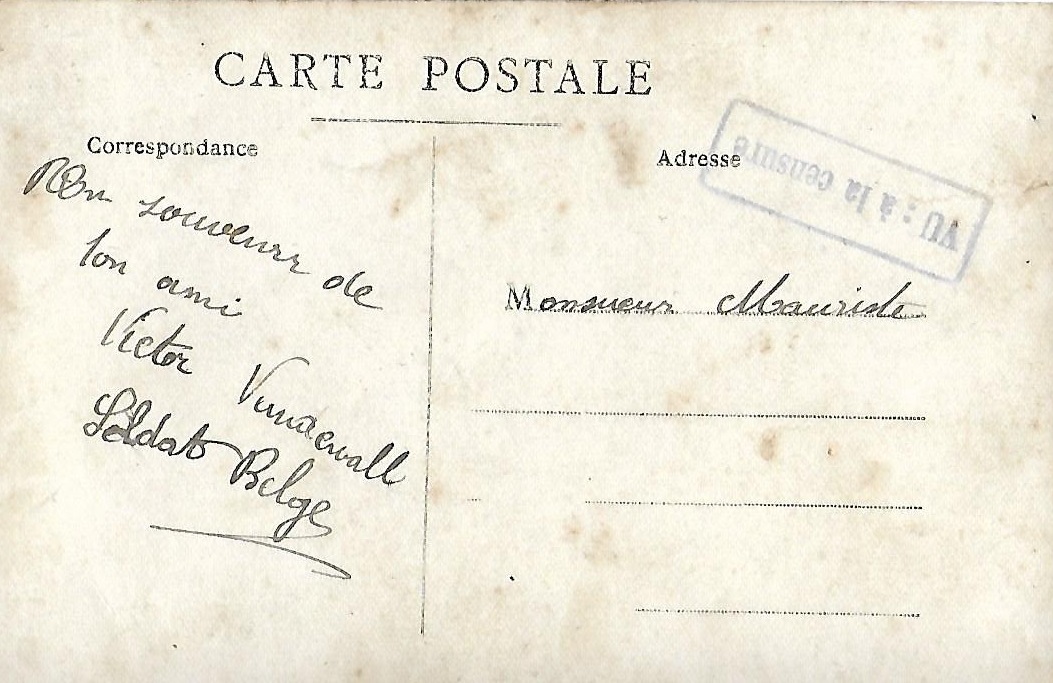 CARTE POSTALE
Correspondance
Adresse
VU : à la censure
Bon souvenir de
ton ami
Victor
Soldat Belge
Monsieur